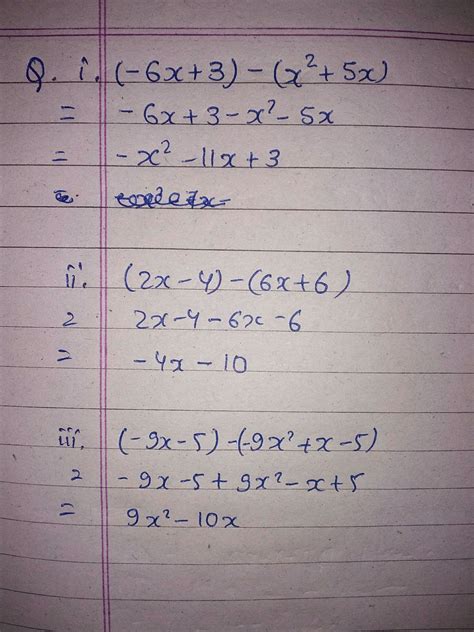 Q. i. (-6x+3)-(x²+5x)
= -6x+3-x²-5x
= -x²-11x+3
ii. (2x-4)-(6x+6)
2 2x-4-6x-6
= -4x-10
iii. (-9x-5)-(-9x²+x-5)
2 -9x-5+9x²-x+5
= 9x²-10x